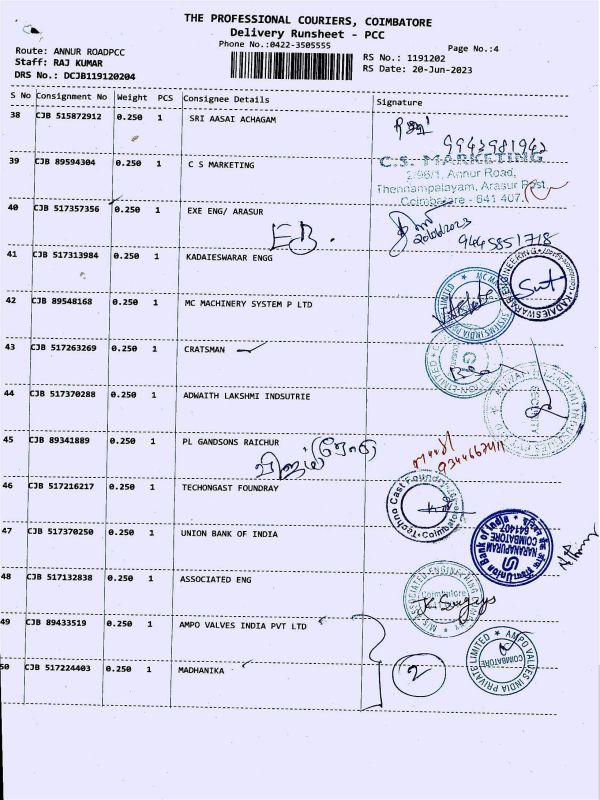 THE PROFESSIONAL COURIERS, COIMBATORE
Delivery Runsheet - PCC
Phone No.:0422-3505555
Page No.:4
Route: ANNUR ROADPCC
Staff: RAJ KUMAR
DRS No.: DCJB119120204
RS No.: 1191202
RS Date: 20-Jun-2023
S No Consignment No Weight PCS Consignee Details Signature
38 CJB 515872912 0.250 1 SRI AASAI ACHAGAM
9942981942
39 CJB 89594304 0.250 1 C S MARKETING
C.S. MARKETING
2/96/1, Annur Road,
Thennampalayam, Arasur Post
Coimbatore - 641 407.
40 CJB 517357356 0.250 1 EXE ENG/ ARASUR
EB.
9445851718
41 CJB 517313984 0.250 1 KADAIESWARAR ENGG
42 CJB 89548168 0.250 1 MC MACHINERY SYSTEM P LTD
43 CJB 517263269 0.250 1 CRATSMAN
44 CJB 517370288 0.250 1 ADWAITH LAKSHMI INDSUTRIE
45 CJB 89341889 0.250 1 PL GANDSONS RAICHUR
46 CJB 517216217 0.250 1 TECHONGAST FOUNDRAY
47 CJB 517370250 0.250 1 UNION BANK OF INDIA
Union Bank of India
NARANAPURAM
COIMBATORE
641407
48 CJB 517132838 0.250 1 ASSOCIATED ENG
M/S ASSOCIATED ENGINEERING COMPANY
Coimbatore
49 CJB 89433519 0.250 1 AMPO VALVES INDIA PVT LTD
AMPO VALVES INDIA PRIVATE LIMITED
COIMBATORE
50 CJB 517224403 0.250 1 MADHANIKA
2